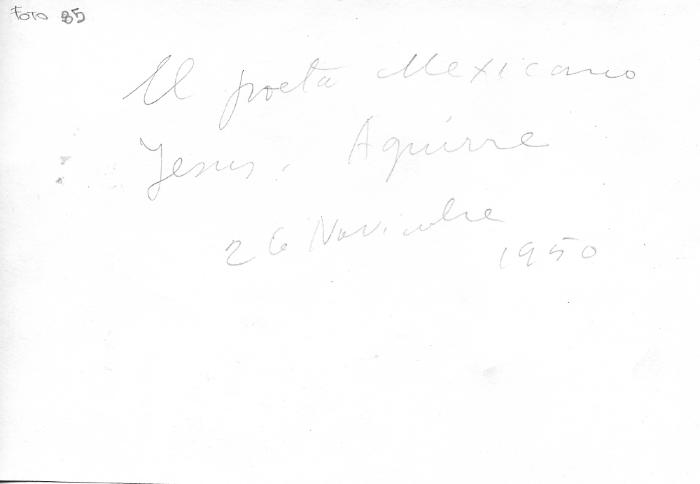 Foto 85
El poeta Mexicano
Jesus. Aguirre
26 Noviembre
1950